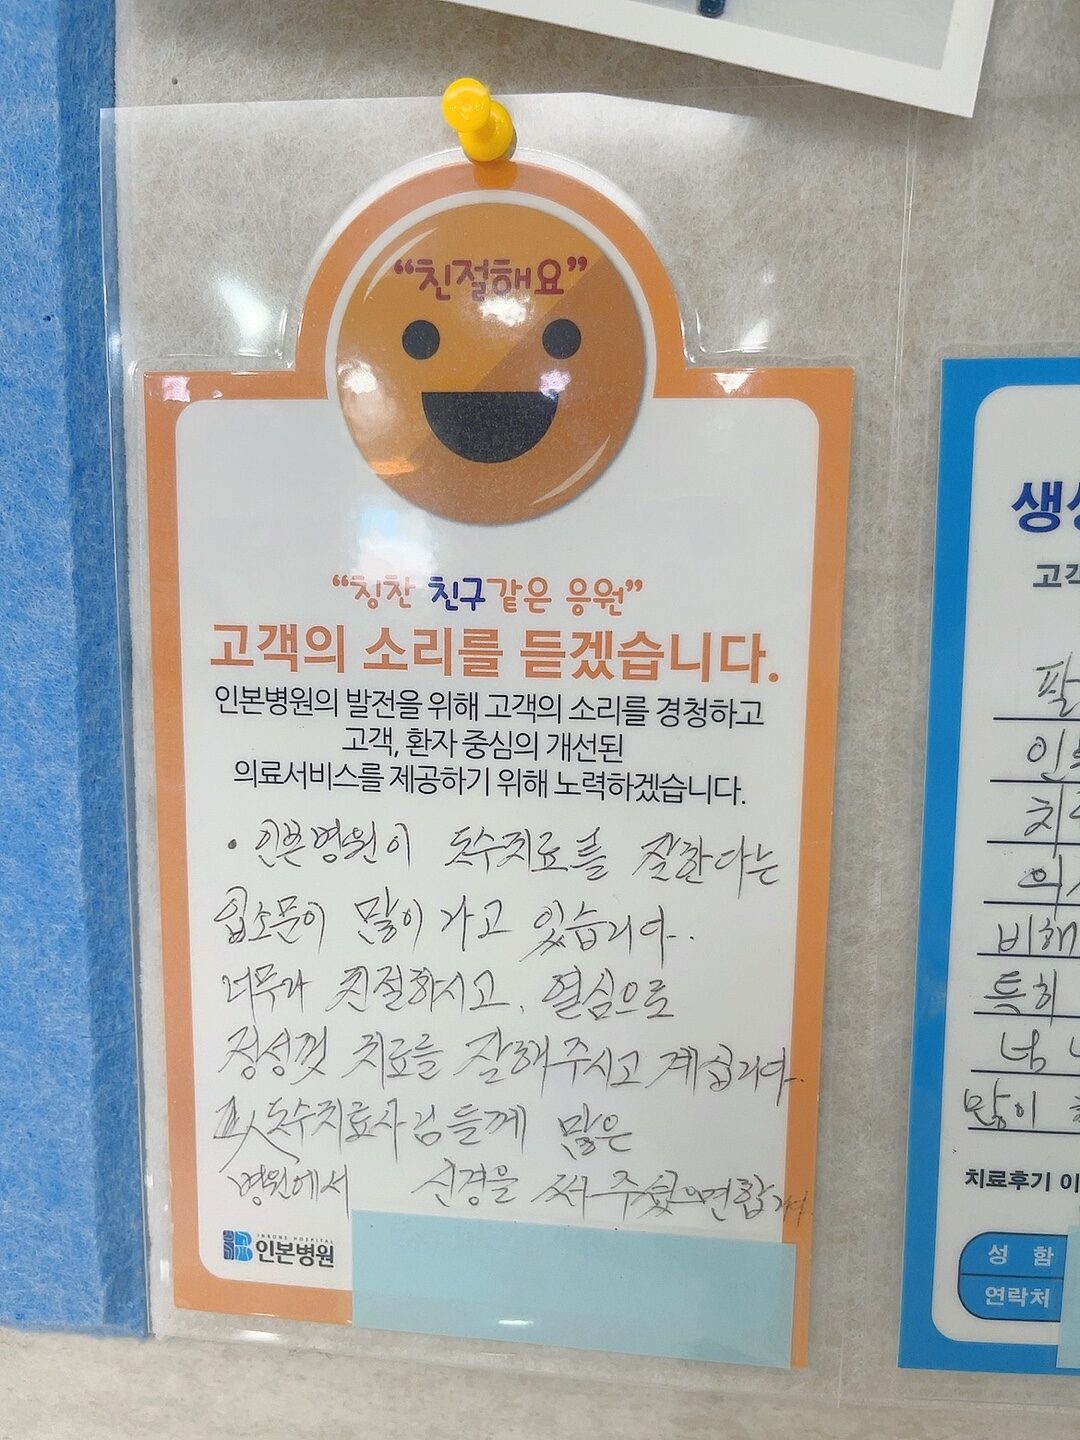 “친절해요”
“칭찬 친구같은 응원”
고객의 소리를 듣겠습니다.
인본병원의 발전을 위해 고객의 소리를 경청하고
고객, 환자 중심의 개선된
의료서비스를 제공하기 위해 노력하겠습니다.
• 인본병원이 도수치료를 잘한다는
입소문이 많이 가고 있습니다.
너무나 친절하시고, 열심으로
정성껏 치료를 잘해주시고 계십니다.
도수치료사님들께 많은
병원에서 신경을 써주셨으면 합니다.
INBONE HOSPITAL
인본병원
고객
인
비해
특히
많이
치료후기 이
성 함
연락처